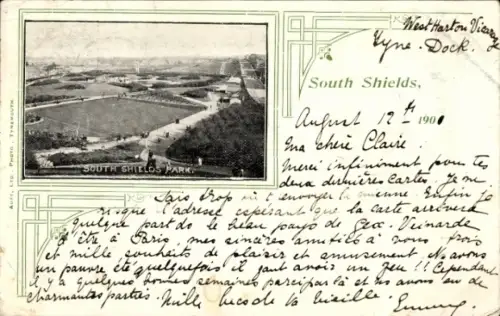 West Harton
Tyne Dock.
South Shields,
August 12th 1901
Ma chère Claire.
Merci infiniment pour tes
deux dernières Cartes. Je ne
sais trop où t'envoyer la mienne. Enfin je
risque l'adresse espérant que la carte arrivera
quelque part do le beau pays de
être à Paris, mes sincères amitiés à vous trois
et mille souhaits de plaisir et amusement. Ns avons
un pauvre été quelquefois il faut avoir un feu!! Cependant
il y a quelques bonnes semaines par ci par là et ns avons eu de
charmantes parties. Mille becs de la vieille.
Emmy.
SOUTH SHIELDS PARK.
AUTY, LTD. PHOTO. TYNEMOUTH